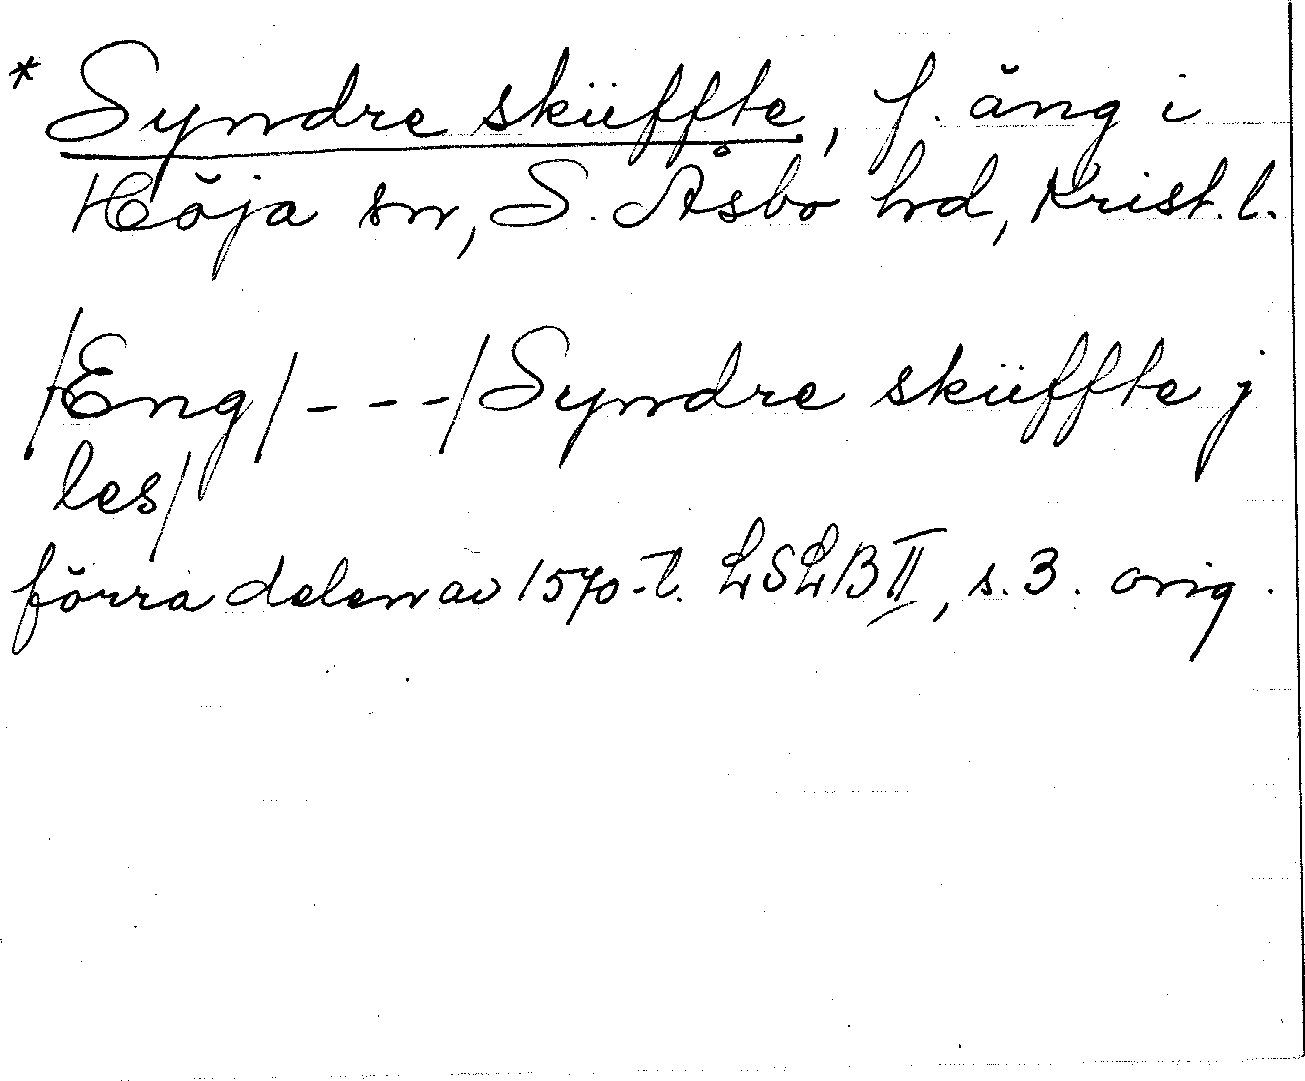 * Syndre skiiffte, f. äng i
Höja sn, S. Åsbo hd, Krist. l.
/Eng/ - - - /Syndre skiiffte j
les/
förra delen av 1570-t. LSLB II, s. 3. orig.